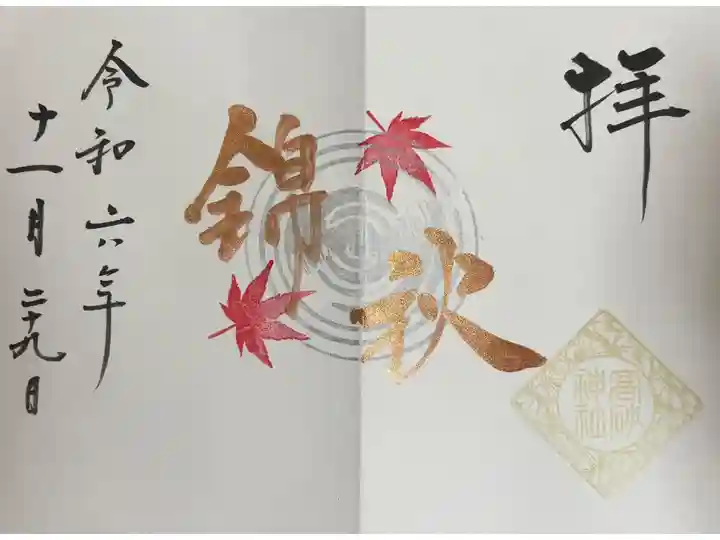 拝
錦
秋
高砂
神社
令和六年
十一月二十九日